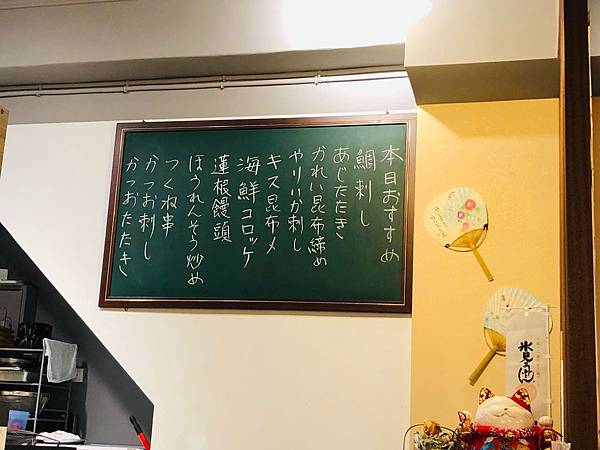 本日おすすめ
鯛刺し
あじたたき
かれい昆布締め
やりいか刺し
キス昆布〆
海鮮コロッケ
蓮根饅頭
ほうれんそう炒め
つくね串
かつお刺し
かつおたたき
氷見うどん